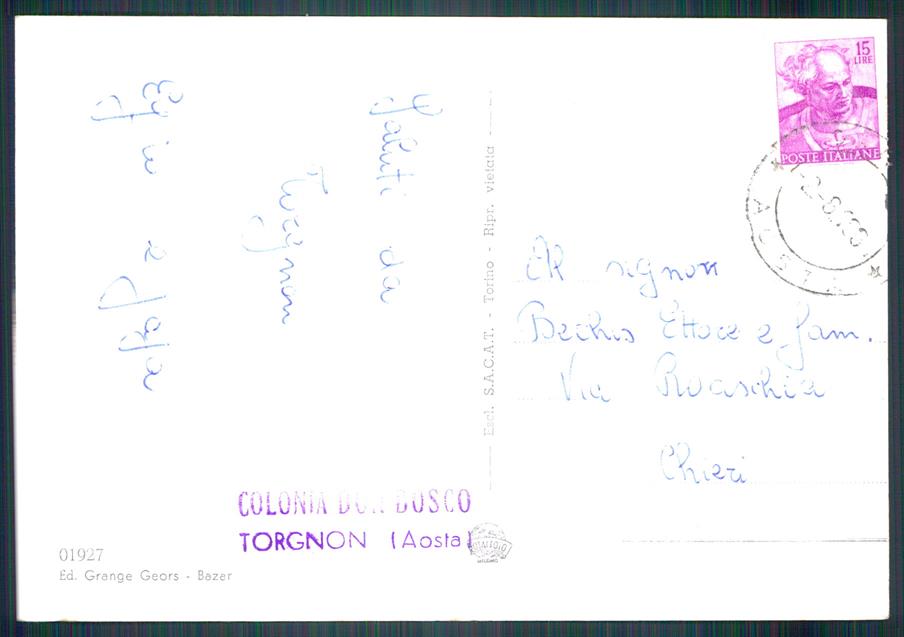 Saluti da
Torgnon
e
15
LIRE
POSTE ITALIANE
AOSTA
Al signor
Bechis Ettore e fam.
Via Roaschia
Chieri
Escl. S.A.C.A.T. - Torino - Ripr. vietata
COLONIA DON BOSCO
TORGNON (Aosta)
01927
Ed. Grange Geors - Bazer